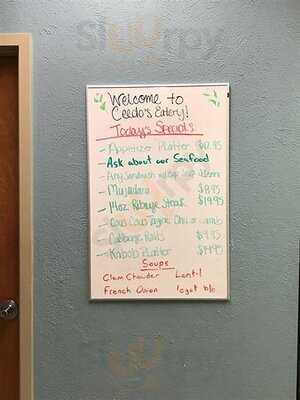 Welcome to
Ceedo's Eatery!
Today's Specials
- Appetizer Platter $12.95
- Ask about our Seafood
- Any Sandwich w/ Cup Soup
- Mujadara $8.95
- 14oz. Ribeye Steak $19.95
- Cous Cous Tagine Chic or Lamb
- Cabbage Rolls $9.95
- Kabob Platter $14.95
Soups
Clam Chowder Lentil
French Onion